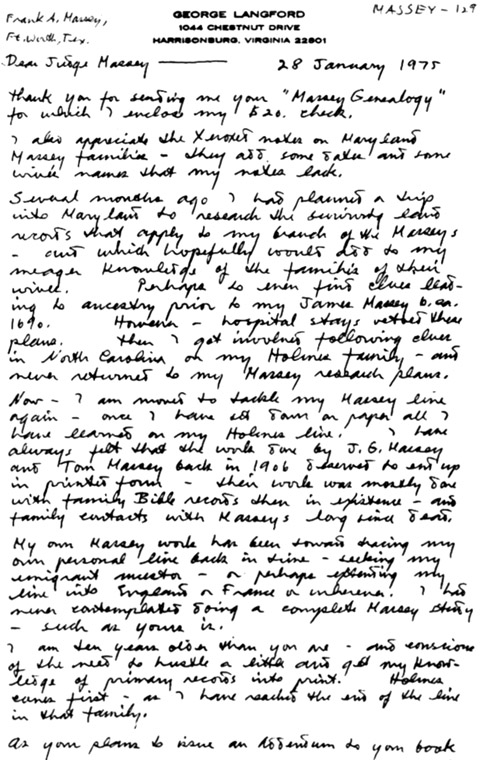 MASSEY - 129
Frank A. Massey,
Ft. Worth, Tex.
GEORGE LANGFORD
1044 CHESTNUT DRIVE
HARRISONBURG, VIRGINIA 22801
Dear Judge Massey — 28 January 1975
Thank you for sending me your "Massey Genealogy"
for which I enclose my $20. check.
I also appreciate the Xeroxed notes on Maryland
Massey families - they add some dates and some
wives names that my notes lack.
Several months ago I had planned a trip
into Maryland to research the surviving land
records that apply to my branch of the Masseys
- and which hopefully would add to my
meager knowledge of the families of their
wives. Perhaps to even find clues lead-
ing to ancestry prior to my James Massey b. ca.
1690. However - hospital stays vetoed these
plans. Then I got involved following clues
in North Carolina on my Holmes family - and
never returned to my Massey research plans.
Now - I am moved to tackle my Massey line
again - once I have set down on paper all I
have learned on my Holmes line. I have
always felt that the work done by J.G. Massey
and Tom Massey back in 1906 deserved to end up
in printed form - their work was mostly done
with family Bible records then in existence - and
family contacts with Masseys long since dead.
My own Massey work has been toward tracing my
own personal line back in time - seeking my
emigrant ancestor - or perhaps extending my
line into England or France or wherever. I had
never contemplated doing a complete Massey study
- such as yours is.
I am ten years older than you are - and conscious
of the need to hustle a little and get my know-
ledge of primary records into print. Holmes
comes first - as I have reached the end of the line
in that family.
As your plans to issue an Addendum to your book